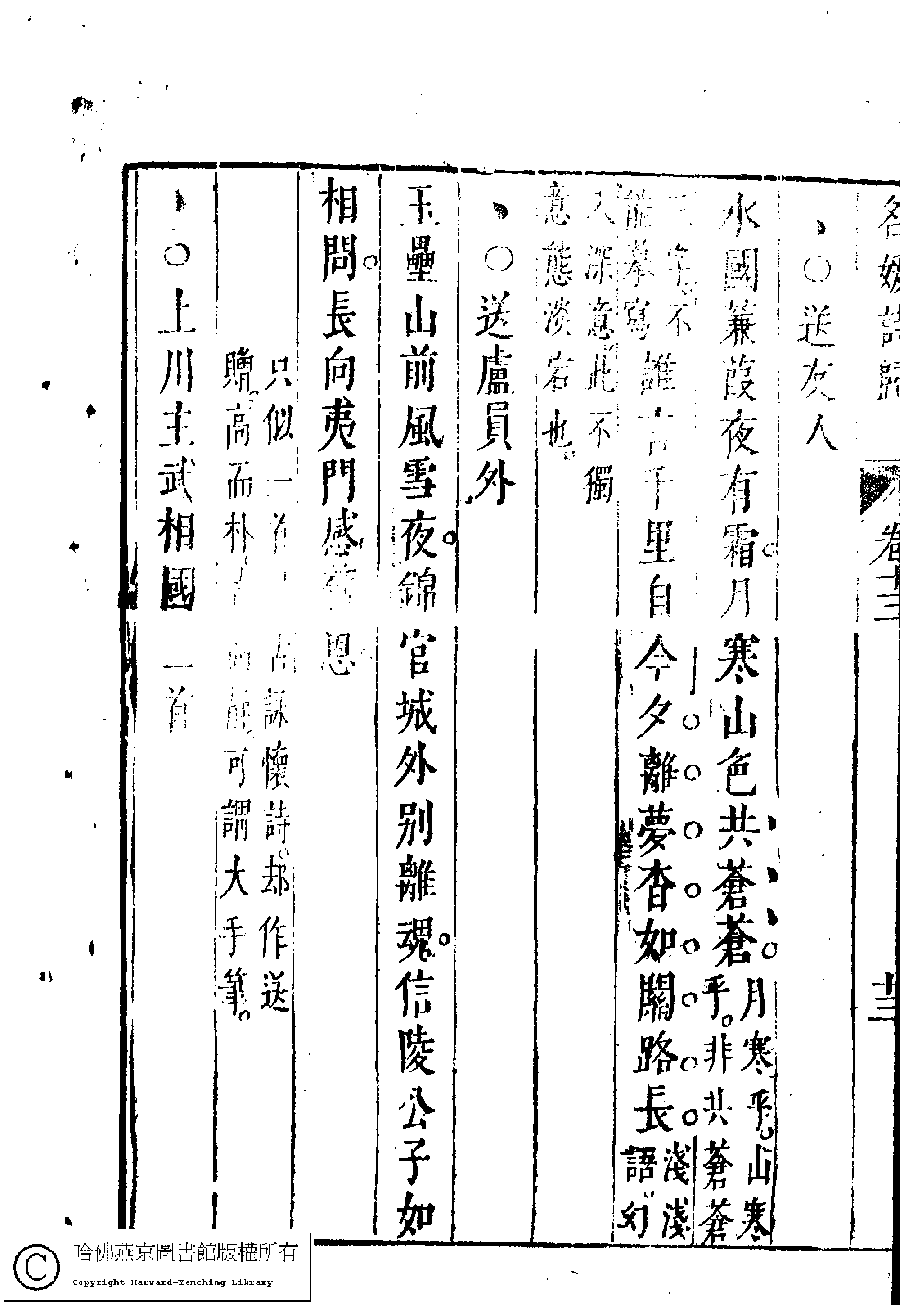 名媛詩歸 卷十三
○送友人
水國蒹葭夜有霜。月寒山色共蒼蒼。
月寒乎。山寒
乎。非共蒼蒼
字不
能摹寫
誰言千里自今夕離夢杳如關路長
淺淺
語幻
入深意此不獨
意態淡宕也。
○送盧員外
玉壘山前風雪夜。錦官城外别離魂。信陵公子如
相問。長向夷門感舊恩
只似一首 詠懷詩。却作送
贈。高而朴 可謂大手筆。
○上川主武相國 首
哈佛燕京圖書館版權所有
© Copyright Harvard-Yenching Library